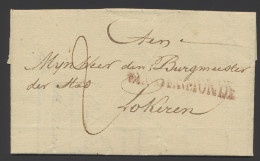 Aen
Mynheer den Burgmeester
der Stad
Lokeren